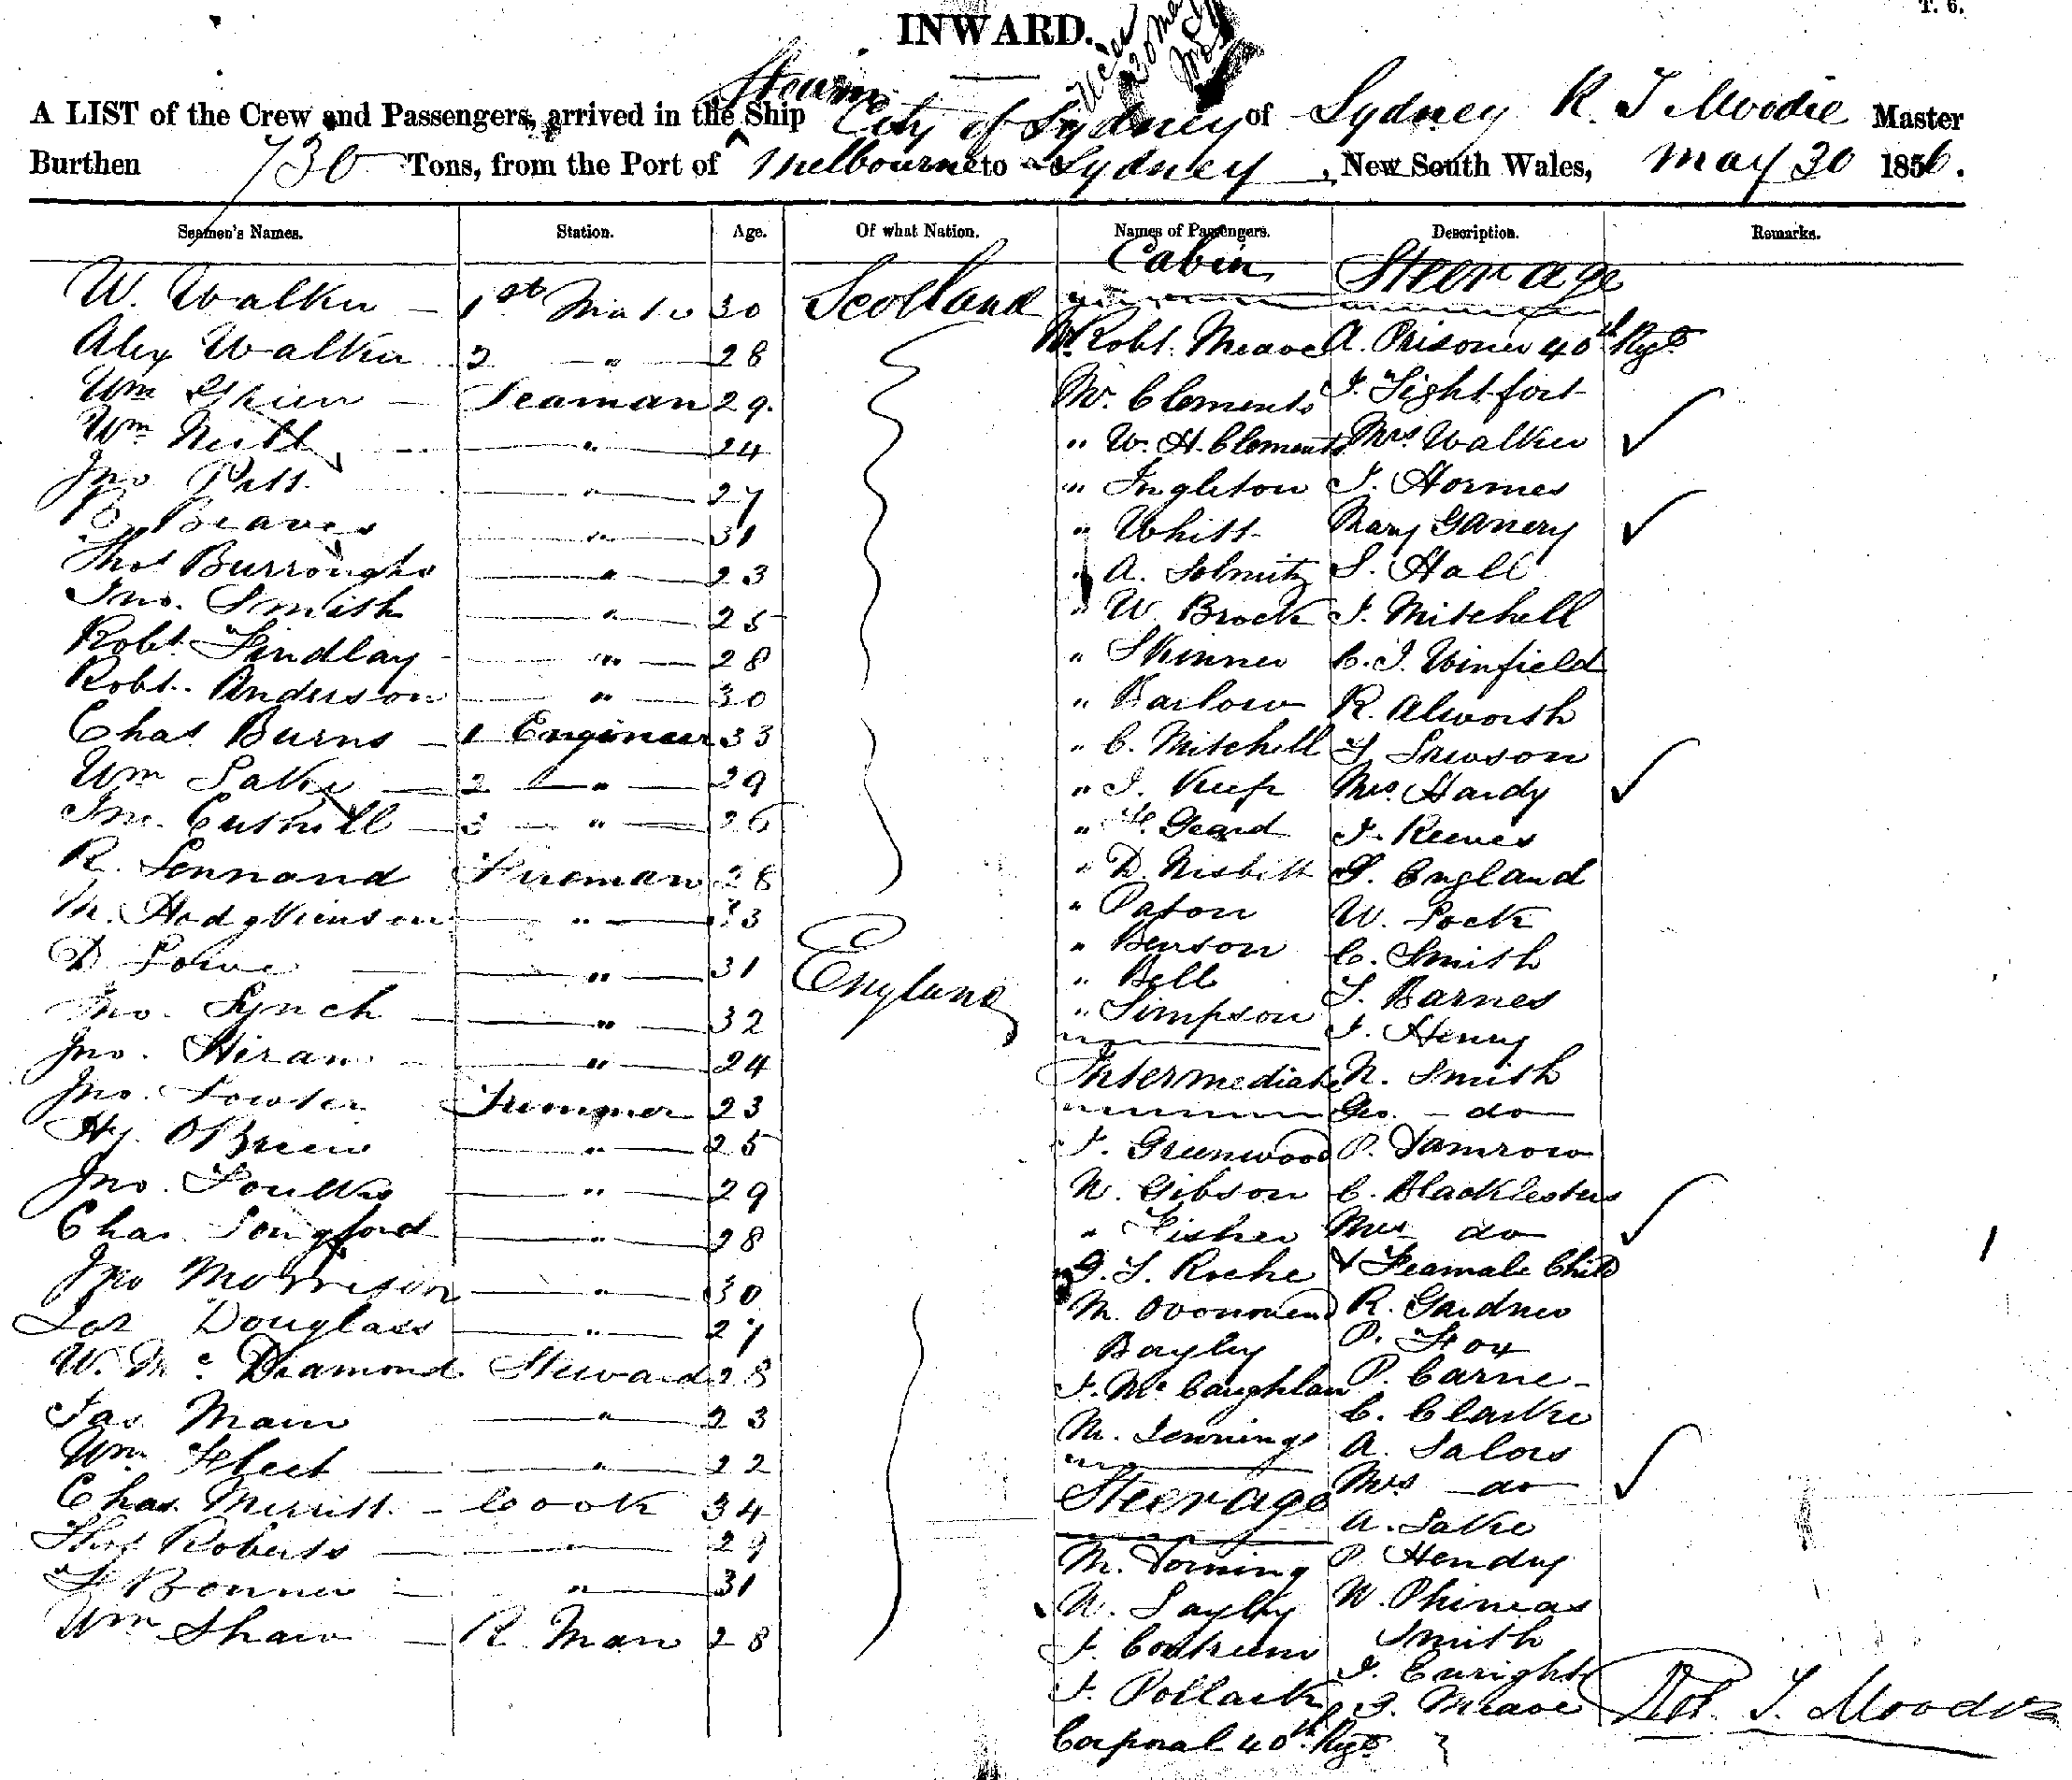 T. 6.
INWARD.
Steam
A LIST of the Crew and Passengers, arrived in the Ship City of Sydney of Sydney R. T Moodie Master
Burthen 730 Tons, from the Port of Melbourne to Sydney, New South Wales, May 30 1856.
Seamen's Names. Station. Age. Of what Nation. Names of Passengers. Description. Remarks.
Cabin Steerage
W. Walker 1st Mate 30 Scotland
Alex Walker 2 " 28 Mr Robt. Meave A. Prisoner 40th Regt
Wm Seaman 29 Mr. Clements J. Lightfoot
Wm " 24 " W. H. Clements Mrs Walker ✓
Jno Pitt " 27 " Ingleton J. Hormes
Beaves " 31 " Whitt Mary Ganery ✓
Thos Burroughs " 23 " A. Solmitz S. Hall
Jno. Smith " 25 " W. Brock J. Mitchell
Robt. Findlay " 28 " Skinner C. J. Winfield
Robt. Anderson " 30 " Barlow R. Alworth
Chas. Burns 1 Engineer 33 " C. Mitchell
Wm Lake 2 " 29 " J. Keep Mrs. Hardy ✓
Jno. Cuthill 3 " 26 " Geard J. Reeves
R. Lennand Fireman 28 " D. Nisbitt England
M. Hodgkinson " 33 " Paton W. Lock
D. Lowe " 31 England " Benson C. Smith
" Bell
Jno. Lynch " 32 " Simpson Barnes
J. Henry
Jno. Hiram " 24 Intermediate N. Smith
Jno. Fowler Trimmer 23 Geo. do
Hy. OBrien " 25 J. Greenwood P. Damrow
Jno. Foulks " 29 N. Gibson C. Blacklesters ✓
Chas. Longford " 28 " Fisher Mrs do
Jno Morrison " 30 Roche & Feamale Child
Douglass " 27 M. R. Gardner
Bayley P. Fox
W. Mc Diamond Steward 28 J. Mc Caughlan P. Carne
Jas. Main " 23 C. Clarke
Wm Fleet " 22 M. Jennings A. Salors
Chas. Merritt Cook 34 Steerage Mrs do ✓
Thos Roberts " 29 A. Lake
Bonner " 31 M. Torning P. Hendry
Wm Shaw R. Man 28 N. Layby W. Phineas
J. Smith
J. Enright
J. Pollack J. Meave Rob. T. Moodie
Corporal 40th Regt